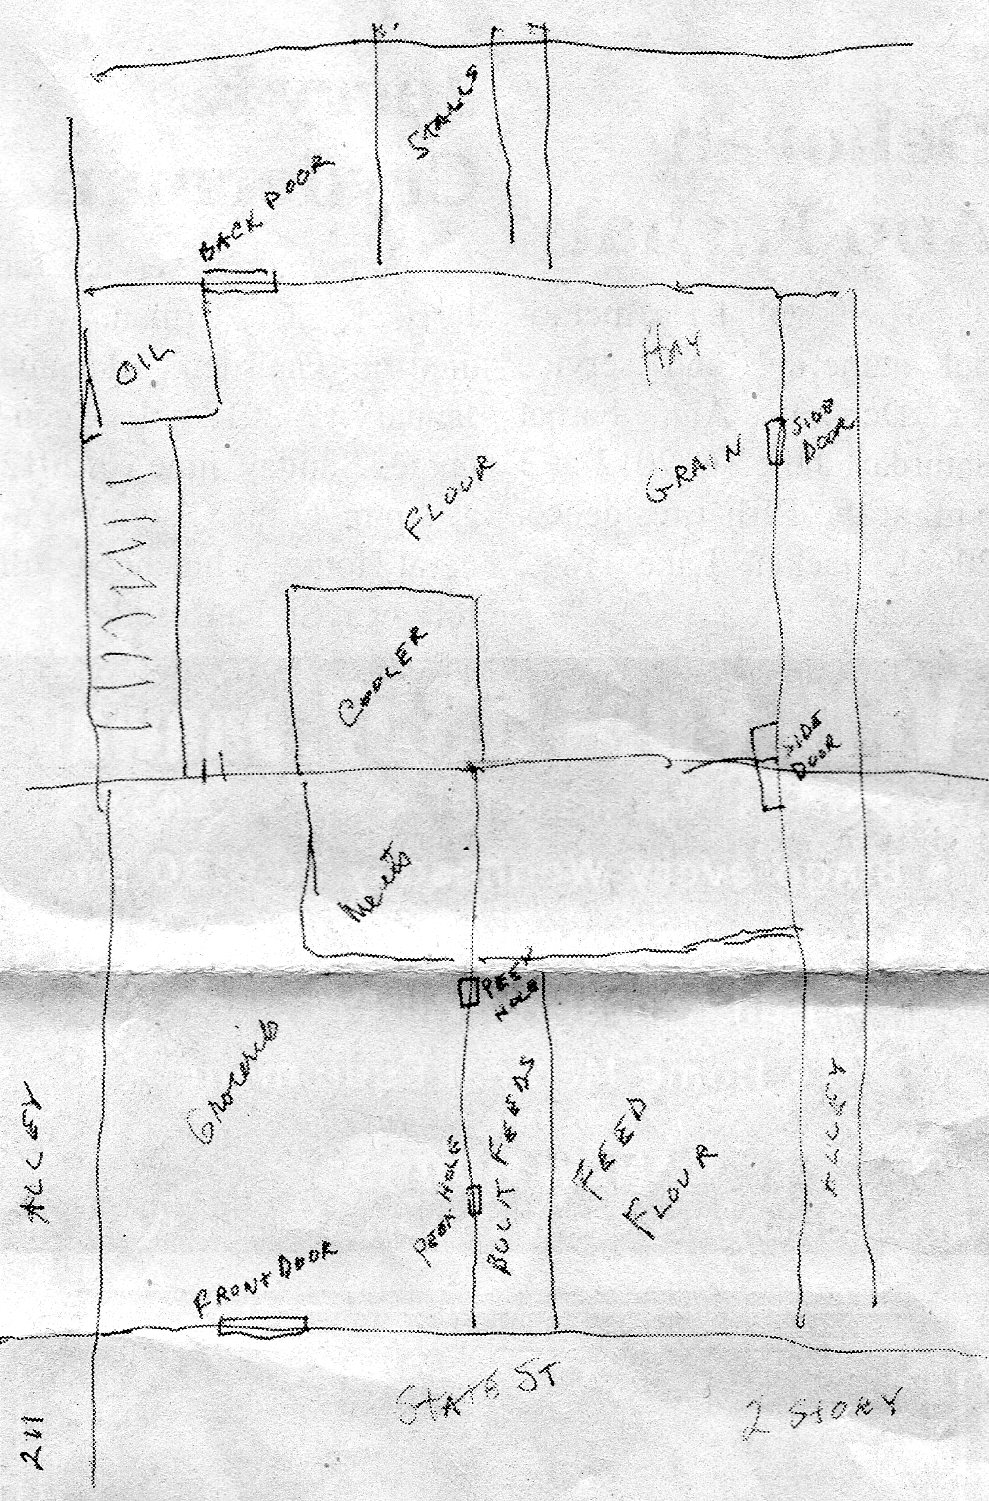 STALLS
BACK DOOR
OIL
HAY
SIDE
DOOR
GRAIN
FLOUR
COOLER
SIDE
DOOR
Meats
PEEK
HOLE
Groceries
ALLEY
PEEK HOLE
BULK FEEDS
FEED
FLOUR
ALLEY
FRONT DOOR
STATE ST
2 STORY
211